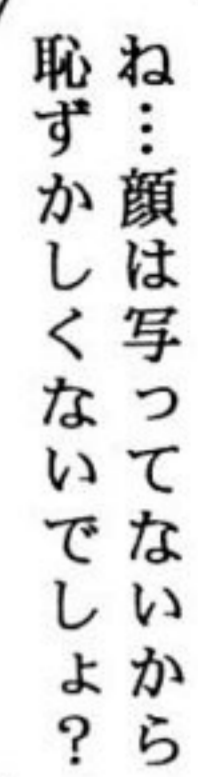 ね…顔は写ってないから
恥ずかしくないでしょ？